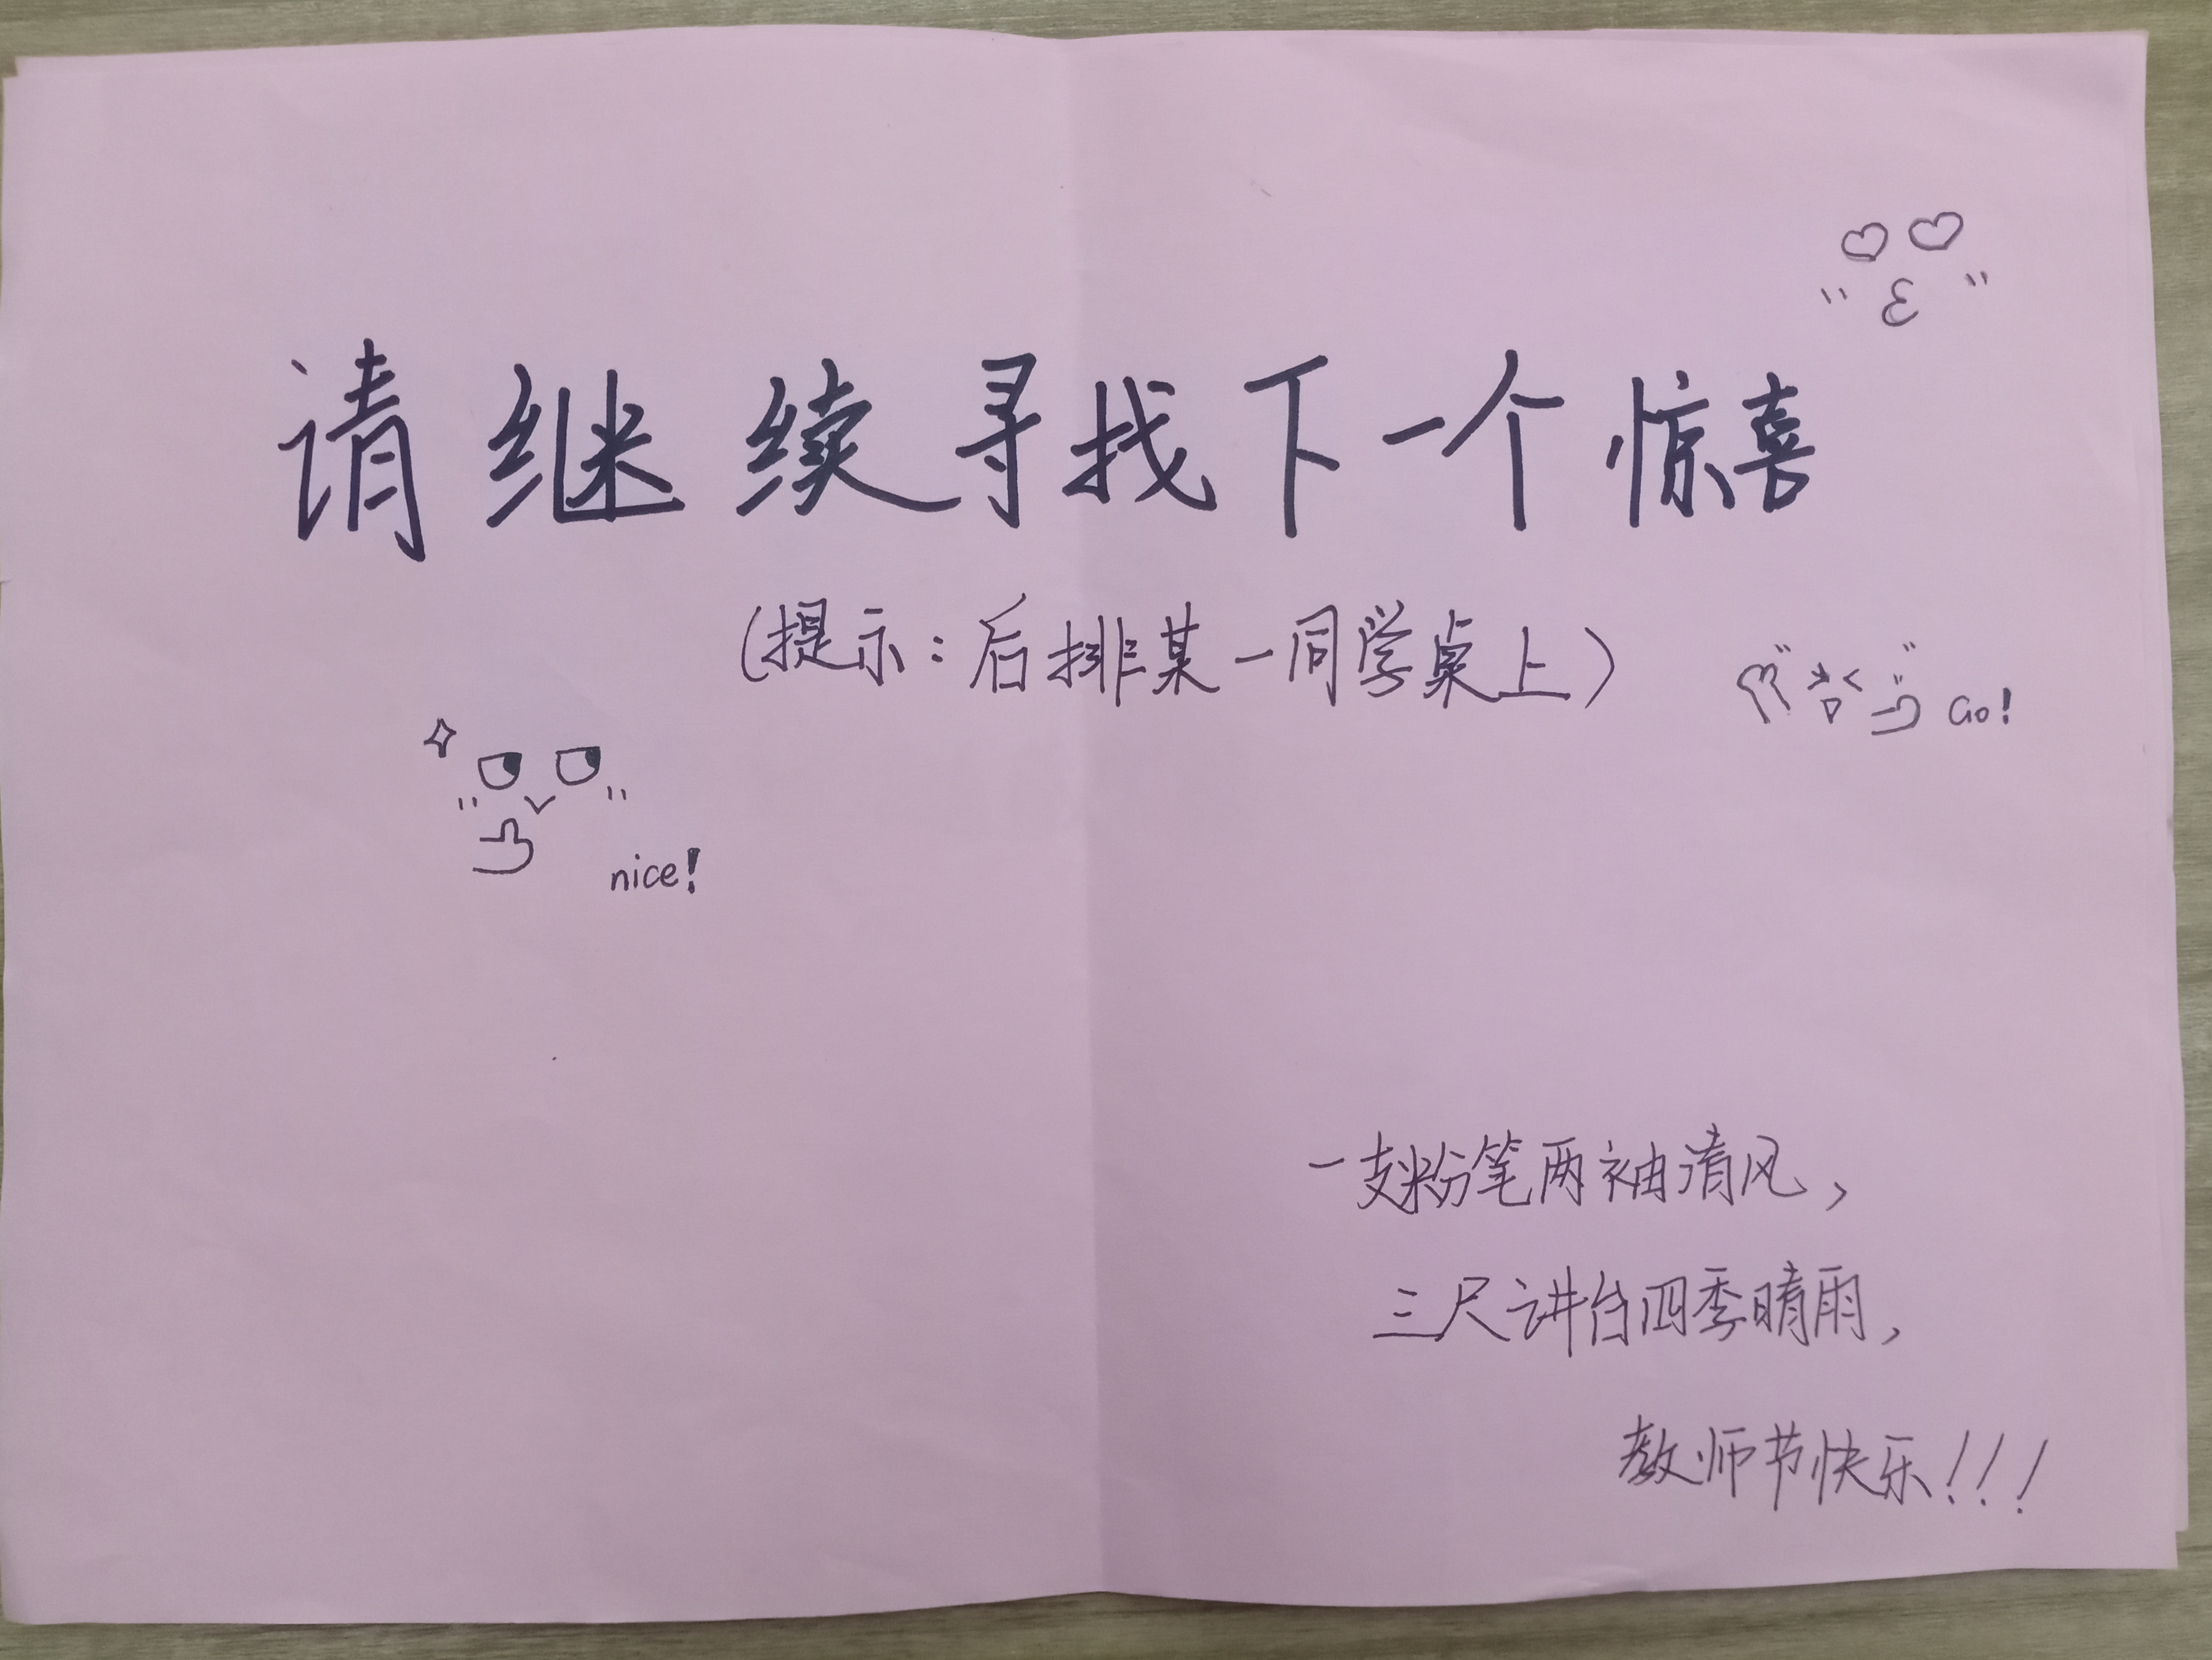 请继续寻找下一个惊喜
(提示：后排某一同学桌上)
Go!
nice!
一支粉笔两袖清风，
三尺讲台四季晴雨，
教师节快乐!!!